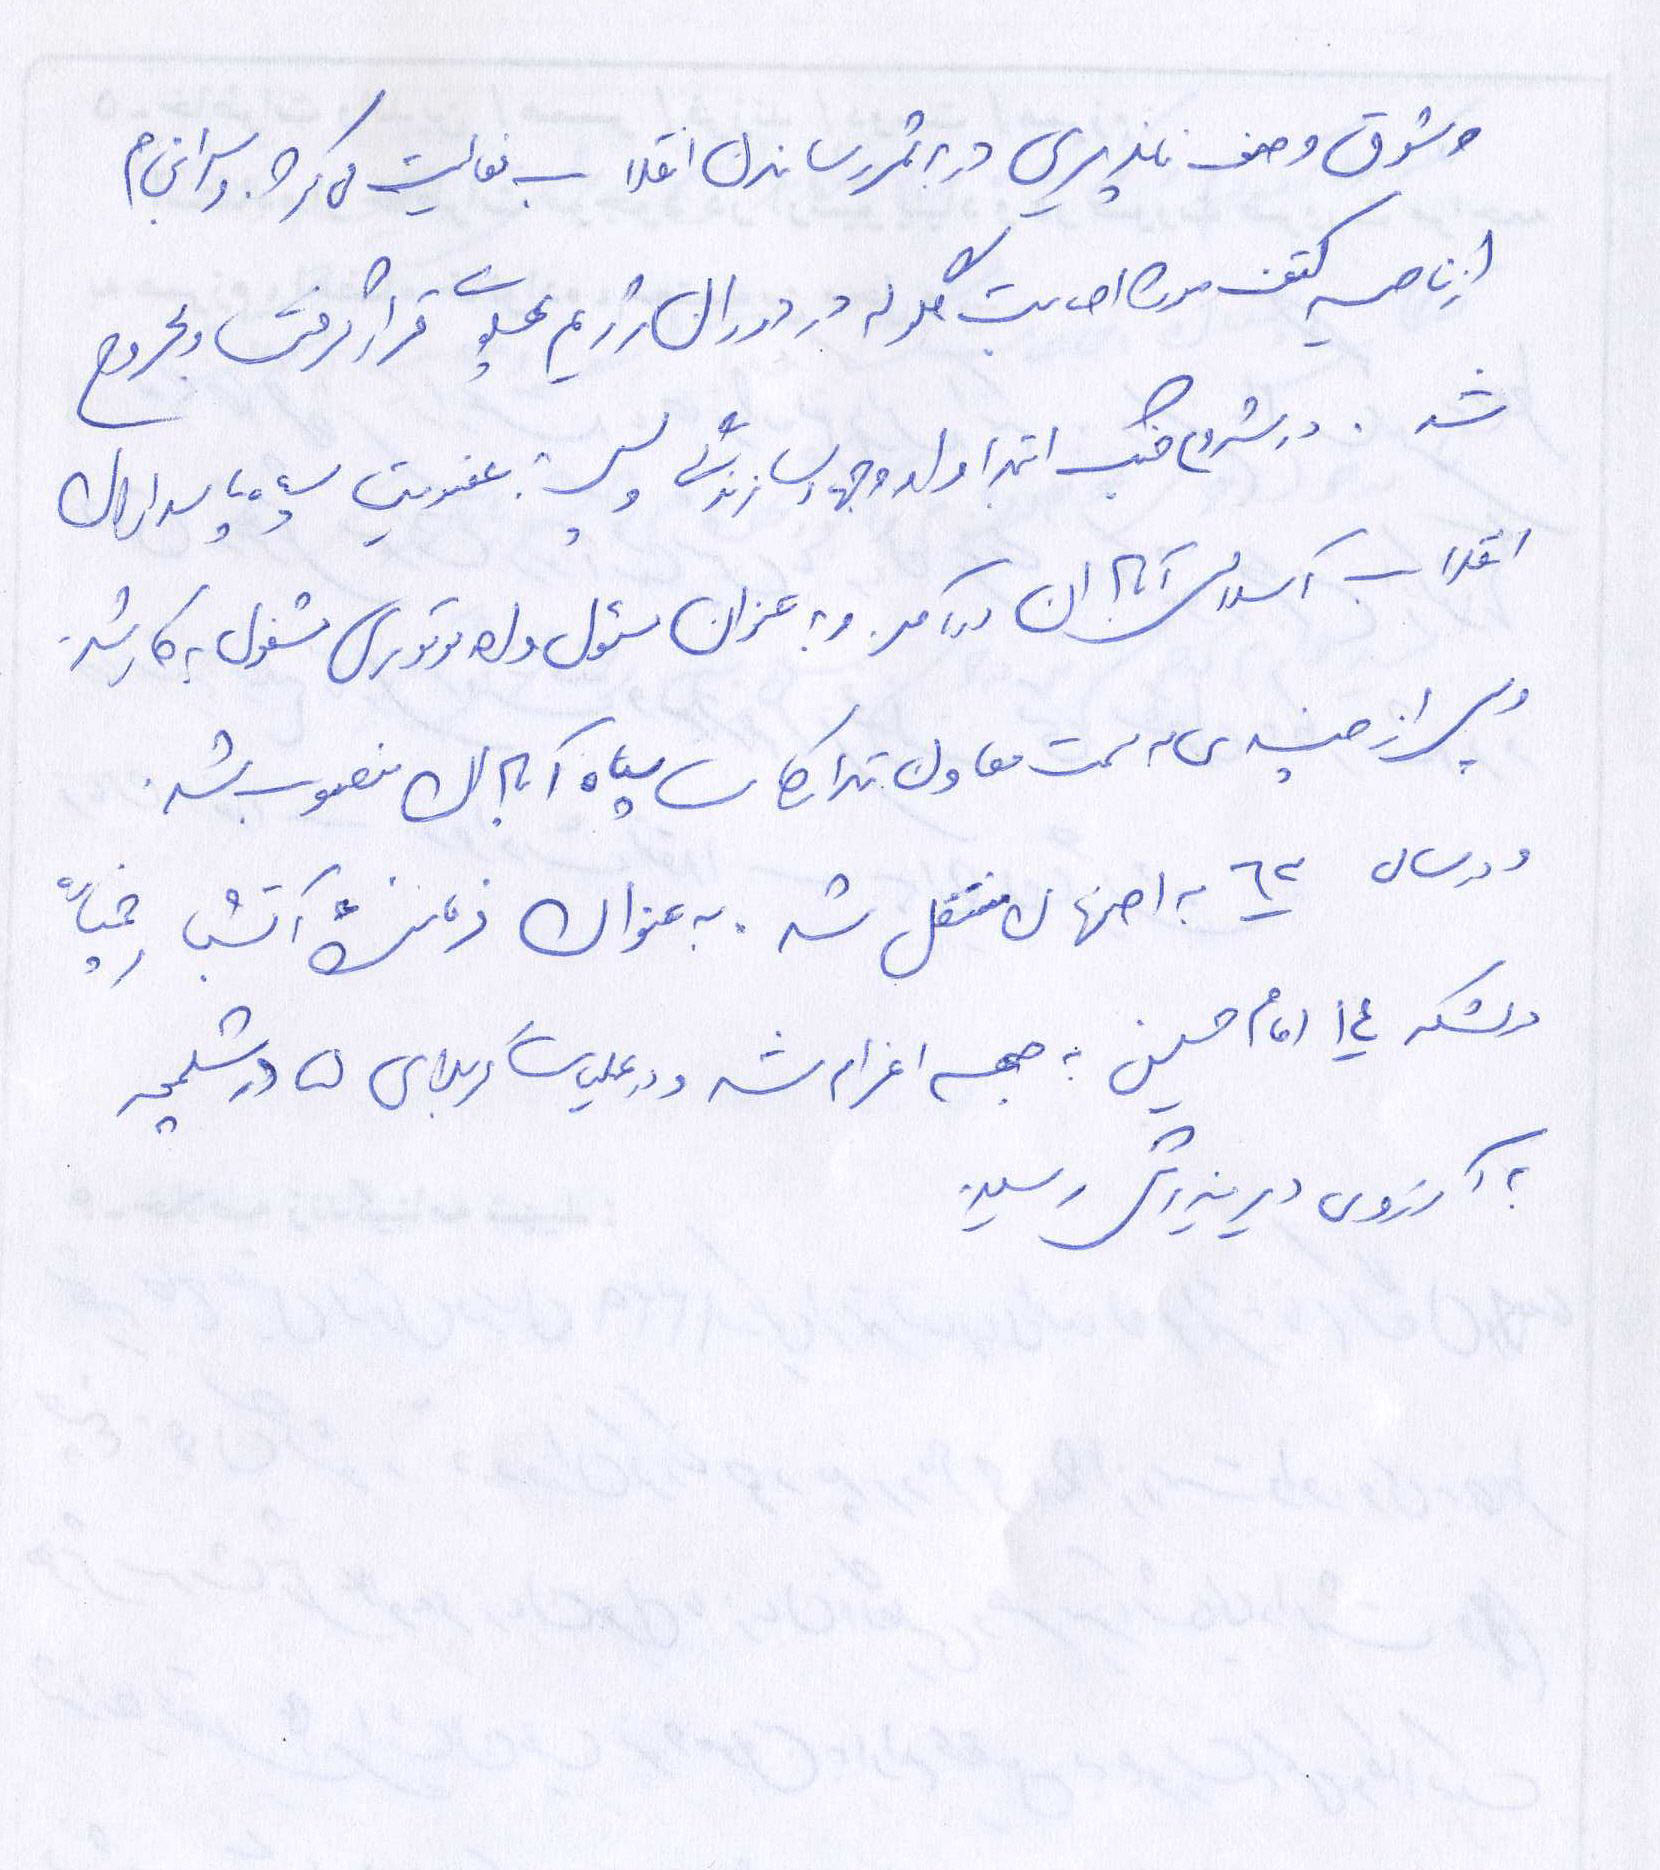 و شوق وصف ناپذیری در به ثمر رساندن انقلاب فعالیت می کرد. و سرانجام
از ناحیه کتف مورد اصابت گلوله در دوران رژیم پهلوی قرار گرفت و مجروح
شد. در شروع جنگ ابتدا وارد جهاد سازندگی و سپس به عضویت سپاه پاسداران
انقلاب اسلامی آغاجاری درآمد. و به عنوان مسئول واحد موتوری مشغول به کار شد.
و پس از چندی به سمت معاون تدارکات سپاه منصوب شد.
و در سال ٦٢ به اصفهان منتقل شد. به عنوان فرمانده آتشبار خمپاره
در لشکر ۱۴ امام حسین به جبهه اعزام شد و در عملیات کربلای ۵ در شلمچه
به آرزوی دیرینه اش رسید.